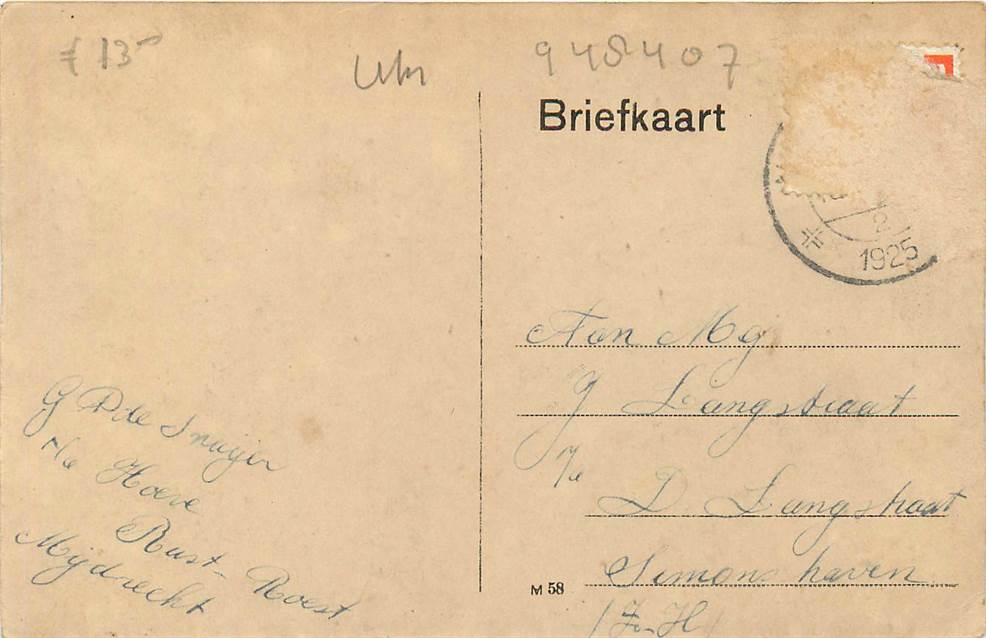 f 13-
948407
Briefkaart
2
1925
Aan Mej
J Langstraat
p/a
D. Langstraat
Simonshaven
(Z.-H)
G P de Snaijer
p/a Hoeve
Rust-Roest
Mijdrecht
M 58